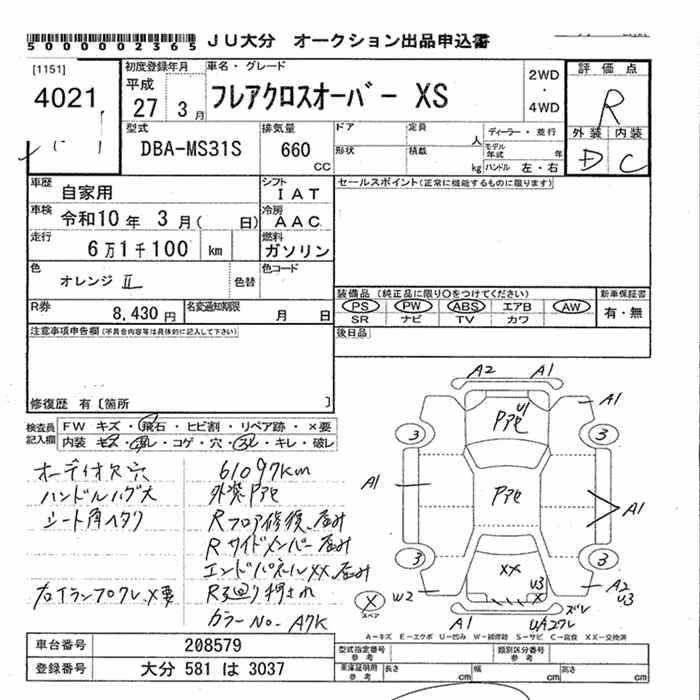 5000002365
JU大分 オークション出品申込書
[1151]
4021
初度登録年月
平成
27 3月
車名・グレード
フレアクロスオーバー XS
2WD
・
4WD
評価点
R
外装 内装
D C
型式
DBA-MS31S
排気量
660
CC
ドア
定員
人
形状
積載
kg
ディーラー・並行
モデル
年式 年
ハンドル 左・右
車歴 自家用
シフト
IAT
車検 令和10年 3月( 日)
冷房
AAC
走行 6万1千100 km
燃料
ガソリン
色
オレンジII
色替
色コード
R券 8,430円
名変通知期限
月 日
セールスポイント(正常に機能するものに限ります)
装備品 (純正品に限り○をつけてください)
PS PW ABS エアB AW
SR ナビ TV カワ
新車保証書
有・無
後日品
注意事項申告欄(不具合内容等は具体的に記入して下さい)
修復歴 有〔箇所 〕
検査員
記入欄
FW キズ・飛石・ヒビ割・リペア跡・×要
内装 キズ・汚レ・コゲ・穴・スレ・キレ・破レ
オーディオ欠穴
ハンドルハゲ大
シート角ヘタリ
61097km
外装Pアセ
Rフロア修復、歪み
Rサイドメンバー歪み
エンドパネルXX、歪み
R廻り押され
カラーNo-A7K
A2 A1
U1
Pアセ
A1
3 3
A1
Pアセ
A1
3 3
XX
U3
X
W2
A2
U3
X
スペア
A1
UA2ワレ
ズレ
A-キズ E-エクボ U-凹み W-補修跡 S-サビ C-腐食 XX-交換済
車台番号 208579
登録番号 大分 581 は 3037
型式指定番号
参考
類別区分番号
参考
車庫証明用
参考
長さ cm
幅 cm
高さ cm